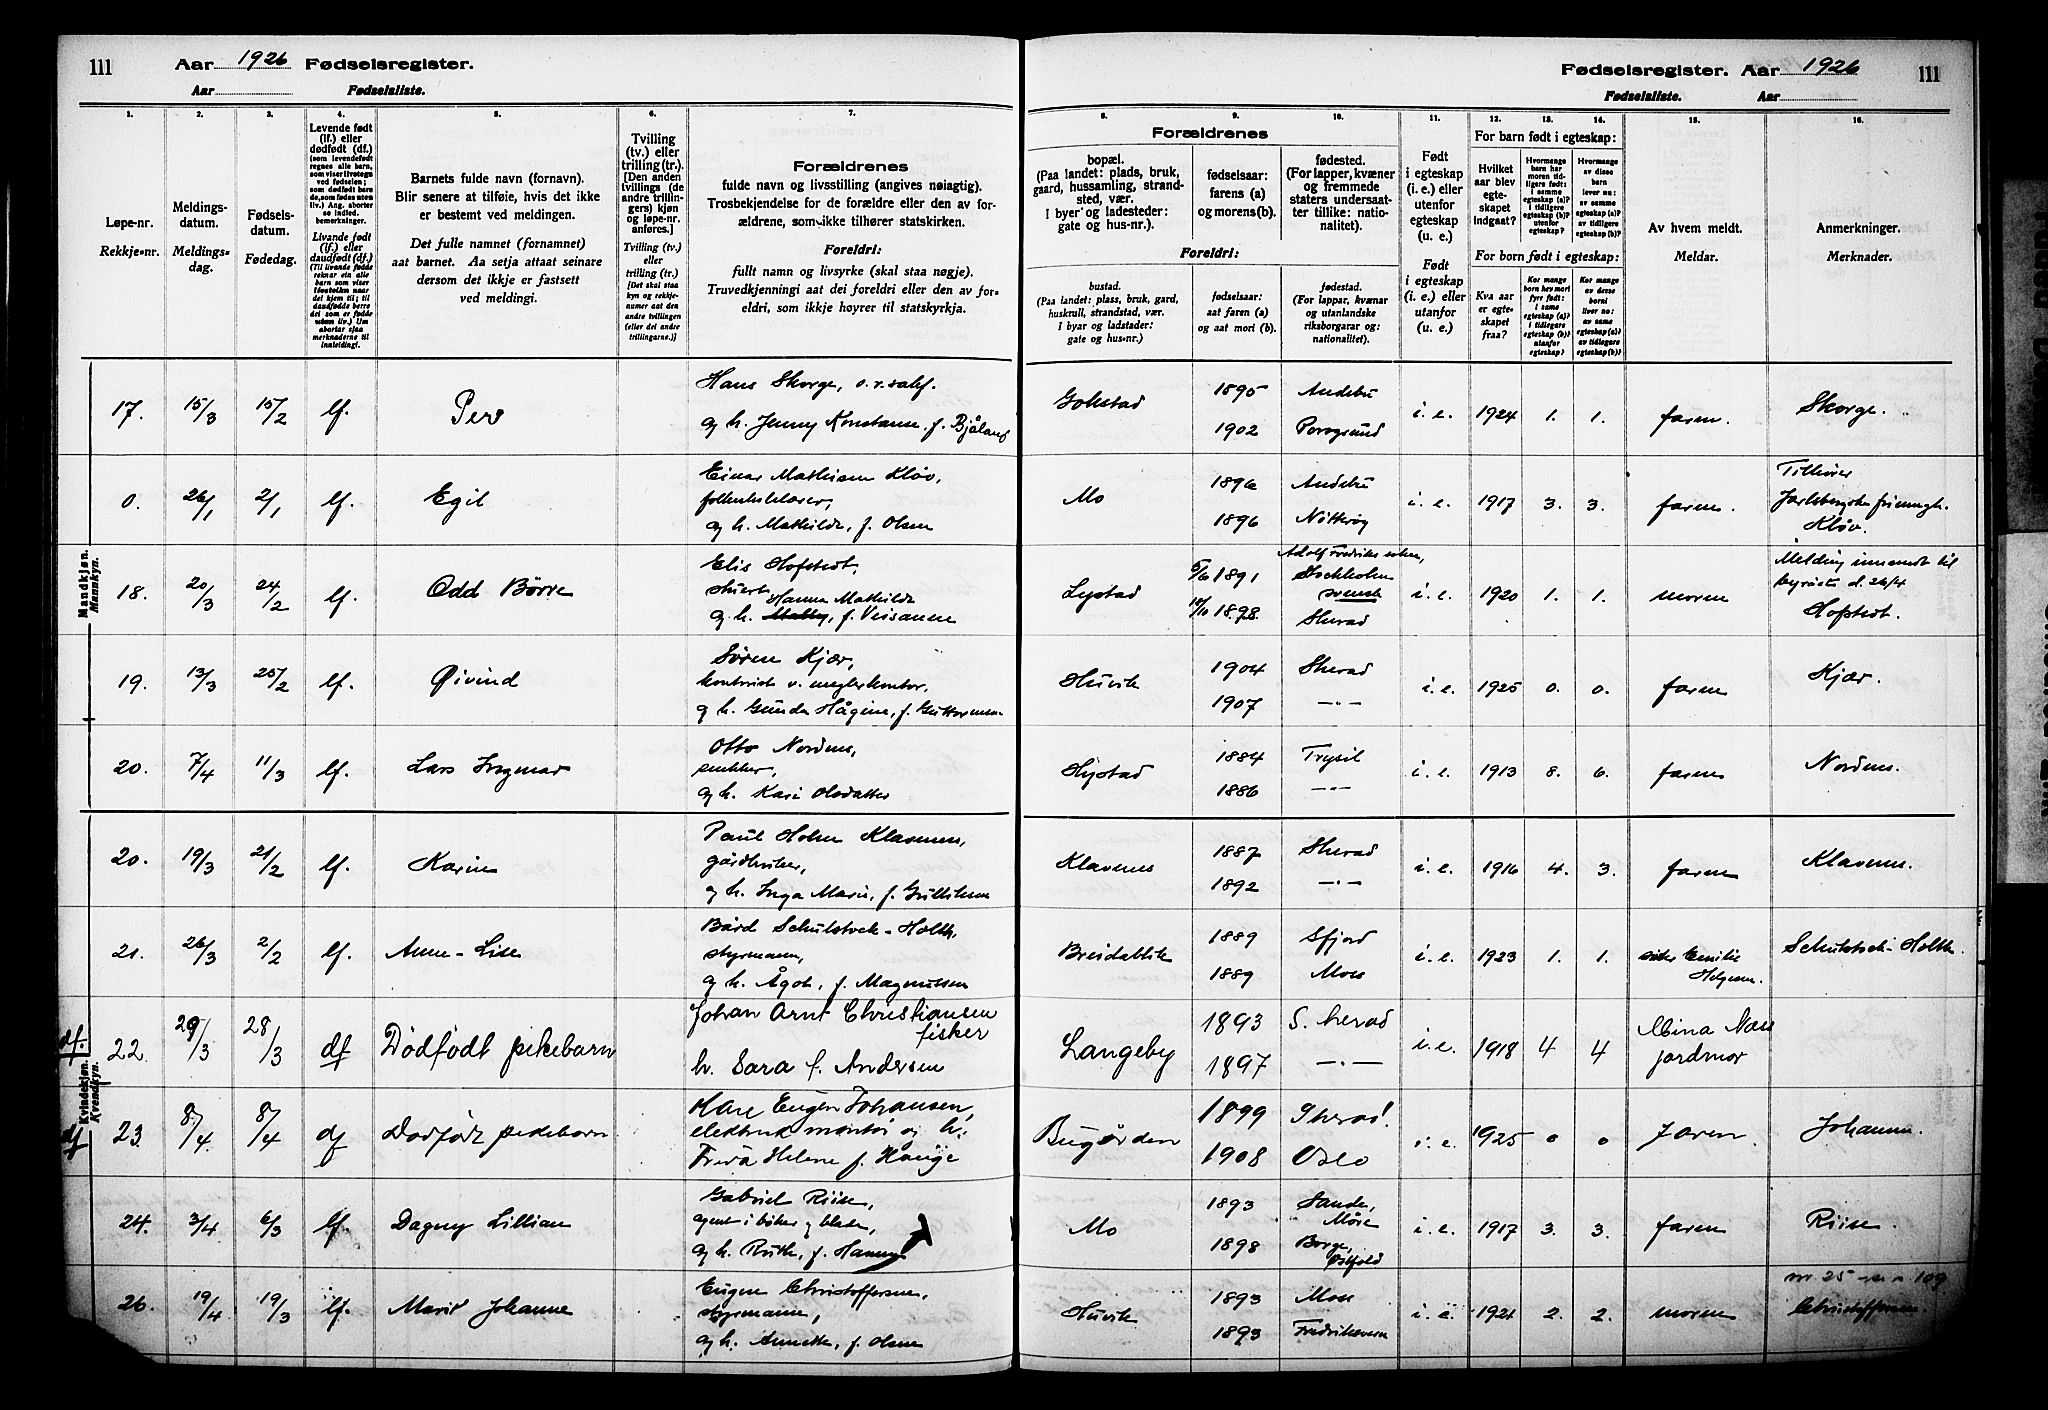 111 Aar 1926 Fødselsregister.
Aar Fødselsliste.
Fødselsregister. Aar 1926 111
Fødselsliste. Aar
1. 2. 3. 4. 5. 6. 7.
8. 9. 10. 11. 12. 13. 14. 15. 16.
Løpe-nr.
Rekkje-nr.
Meldings-
datum.
Meldings-
dag.
Fødsels-
datum.
Fødedag.
Levende født
(lf.) eller
dødfødt (df.)
Livande født
(lf.) eller
daudfødt (df.)
Barnets fulde navn (fornavn).
Blir senere at tilføie, hvis det ikke
er bestemt ved meldingen.
Det fulle namnet (fornamnet)
aat barnet. Aa setja attaat seinare
dersom det ikkje er fastsett
ved meldingi.
Tvilling
(tv.) eller
trilling (tr.)
[Den anden
tvillings (de
andre trillin-
gers) kjøn
og løpe-nr.
anføres.]
Tvilling (tv.)
eller
trilling (tr.)
[Det skal staa
kyn og rekkje-
numer aat den
andre tvillingen
(eller dei andre
trillingarne.)]
Forældrenes
fulde navn og livsstilling (angives nøiagtig).
Trosbekjendelse for de forældre eller den av for-
ældrene, som ikke tilhører statskirken.
Foreldri:
fullt namn og livsyrke (skal staa nøgje).
Truvedkjenningi aat dei foreldri eller den av for-
eldri, som ikkje høyrer til statskyrkja.
Forældrenes
bopæl.
(Paa landet: plads, bruk,
gaard, hussamling, strand-
sted, vær.
I byer og ladesteder:
gate og hus-nr.).
fødselsaar:
farens (a)
og morens (b).
fødested.
(For lapper, kvæner
og fremmede
staters undersaat-
ter tillike: natio-
nalitet).
Foreldri:
bustad.
(Paa landet: plass, bruk, gard,
huskrull, strandstad, vær.
I byar og ladstader:
gate og hus-nr.)
fødselsaar:
aat faren (a)
og aat mori (b).
fødestad.
(For lappar, kvænar
og utanlandske
riksborgarar og:
nationalitet).
Født
i egteskap
(i. e.) eller
utenfor
egteskap
(u. e.)
Født
i egteskap
(i. e.) eller
utanfor
(u. e.)
For barn født i egteskap:
Hvilket
aar blev
egte-
skapet
indgaat?
For born født i egteskap:
Kva aar
er egte-
skapet
fraa?
Av hvem meldt.
Meldar.
Anmerkninger.
Merknader.
Mandkjøn.
Mannkyn.
17. 15/3 15/2 lf. Per
Hans Skorge,
og h. Jenny Konstanse, f. Bjåland
Gokstad 1895 Andebu i. e. 1924 1. 1. faren. Skorge.
1902
0. 26/1 2/1 lf. Egil
Einar Mathisen Kløv,
og h. Mathilde, f. Olsen
Mo 1896 Andebu i. e. 1917 3. 3. faren.
1896 Nøtterøy
Tilhører
Jarlsbergske frimenigh.
Kløv.
18. 20/3 24/2 lf. Odd Børre
Elis Hofstedt,
stuert
Hanna Mathilde
og h.
Lystad 5/6 1891 Adolf Fredriks sokn,
Stockholm
svensk
1898. Sherad
i. e. 1920 1. 1. moren
Melding innsendt til
byrået d. 26/4
Hofstedt.
19. 13/3 25/2 lf. Øivind
Søren Kjær,
kontorist v. meglerkontor,
og h. Gunda Hågine, f. Guttormsen
Husvik 1904 Sherad i. e. 1925 0. 0. faren Kjær.
1907 —"—
20. 7/4 11/3 lf. Lars Ingmar
Otto Nordnes,
snekker,
og h. Kari Olsdatter
Nystad 1884 Trysil i. e. 1913 8. 6. faren Nordnes.
1886 —"—
Kvindekjøn.
Kvendkyn.
20. 19/3 21/2 lf. Karin
Paul Holm Klavenes,
gårdbruker,
og h. Inga Marie, f. Gulliksen
Klavenes 1887 Sherad i. e. 1916 4. 3. faren Klavenes.
1892 —"—
21. 26/3 2/2 lf. Anne-Lise
Bård Schulstock-Holth,
styrmann,
og h. Ågot, f. Magnussen
Breidablik 1889 i. e. 1923 1. 1. Schulstock-Holth.
1889 Moss
df. 22. 29/3 28/3 df Dödfödt pikebarn
Johan Arnt Christiansen
fisker
h. Sara f. Andersen
Langeby 1893 S. herad i. e. 1918 4 4 Mina Næss
1897 —"— jordmor
df 23. 8/4. 8/4 df Dødfødt pikebarn
Kåre Eugen Johansen,
elektrisk montør og h.
Frida Helene f. Hauge
Bugården 1899 Sherad. i. e. 1925 0 0 Faren. Johansen.
1908 Oslo
24. 3/4 6/3 lf. Dagny Lillian
Gabriel Riise,
agent i bøker og blader,
og h. Ruth, f. Hansen
Mo 1893 Sande,
Møre i. e. 1917 3. 3. faren Riise.
1898 Borge,
Østfold
26. 19/4 19/3 lf. Marit Johanne
Eugen Christoffersen,
styrmann,
og h. Annette, f. Olsen
Husvik 1893 Moss i. e. 1921 2. 2. moren
1893 Fredriksvern
nr 25 109
Christoffersen.